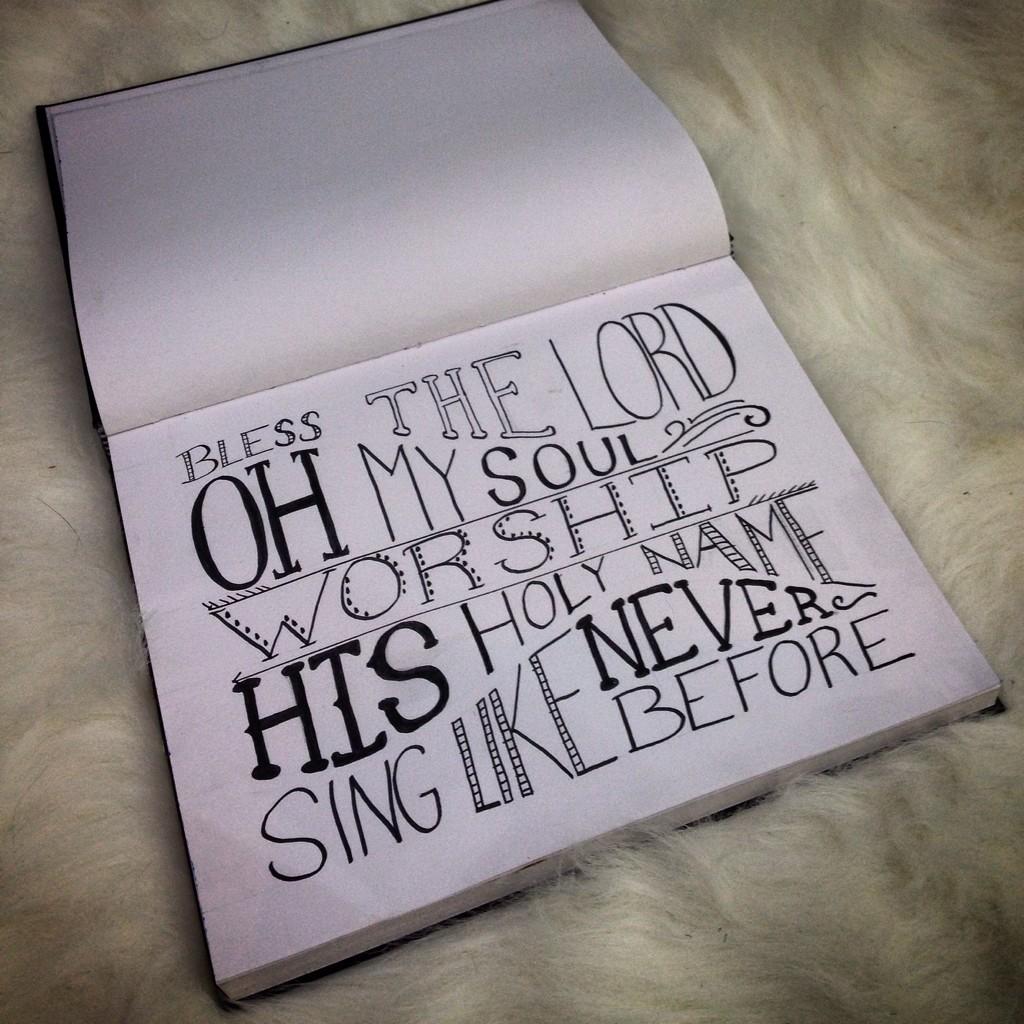 BLESS THE LORD
OH MY SOUL
WORSHIP
HIS HOLY NAME
SING LIKE NEVER
BEFORE